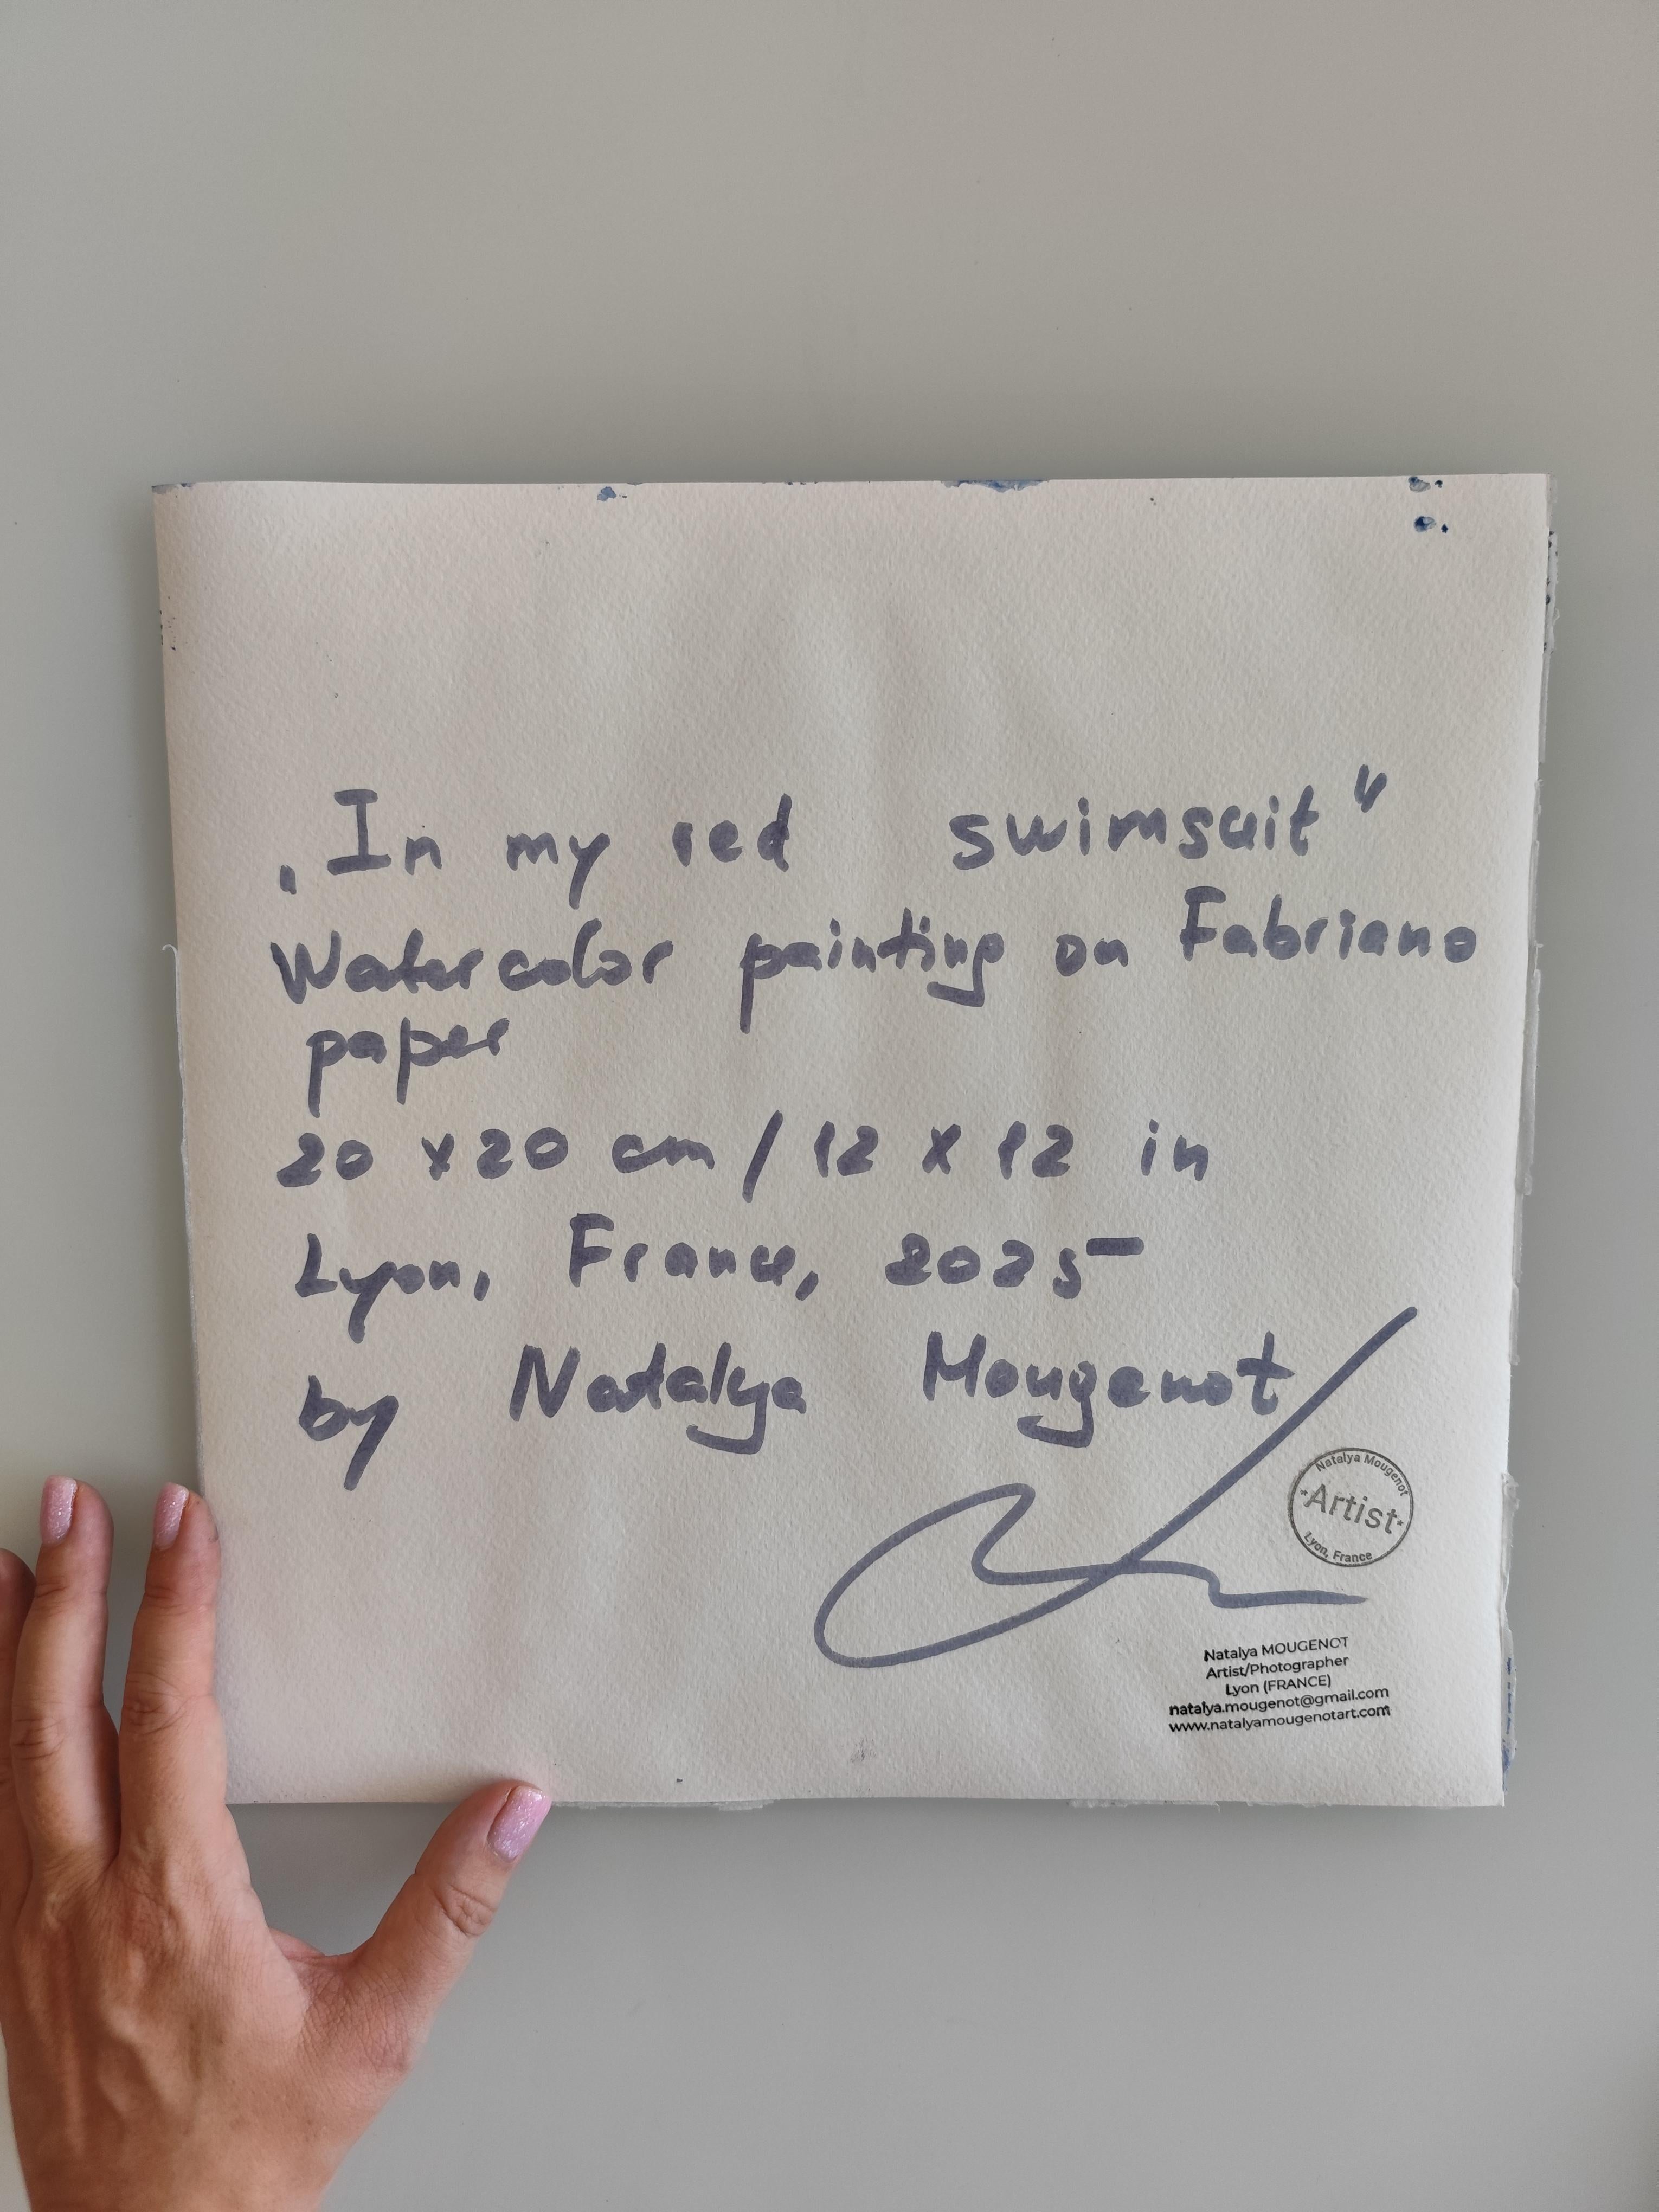 „In my red swimsuit"
Watercolor painting on Fabriano
paper
20 x 20 cm / 12 x 12 in
Lyon, France, 2025
by Natalya Mougenot
Natalya Mougenot
Artist
Lyon, France
Natalya MOUGENOT
Artist/Photographer
Lyon (FRANCE)
natalya.mougenot@gmail.com
www.natalyamougenotart.com